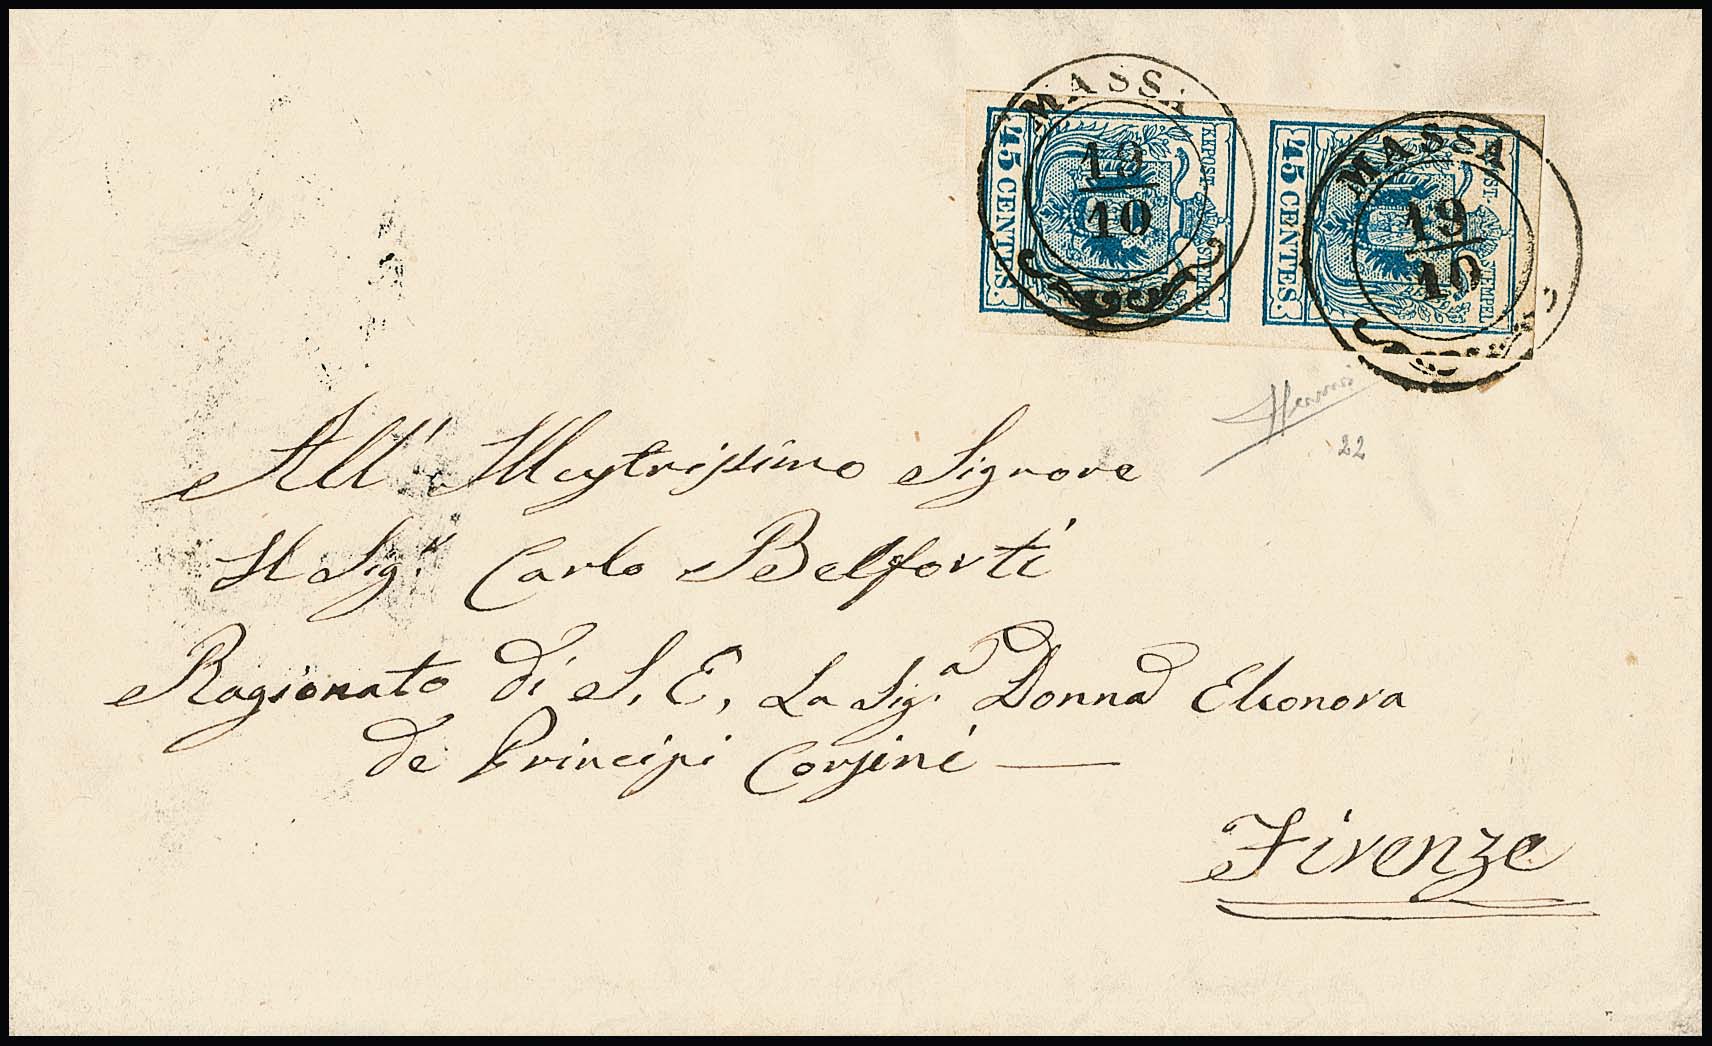 MASSA
19
10
MASSA
19
10
KKPOST-STEMPEL
45 CENTES.
KKPOST-STEMPEL
45 CENTES.
22
All' Illustrissimo Signore
Il Sig.r Carlo Belforti
Ragionato di S. E. La Sig.a Donna Eleonora
de Principi Corsini
Firenze